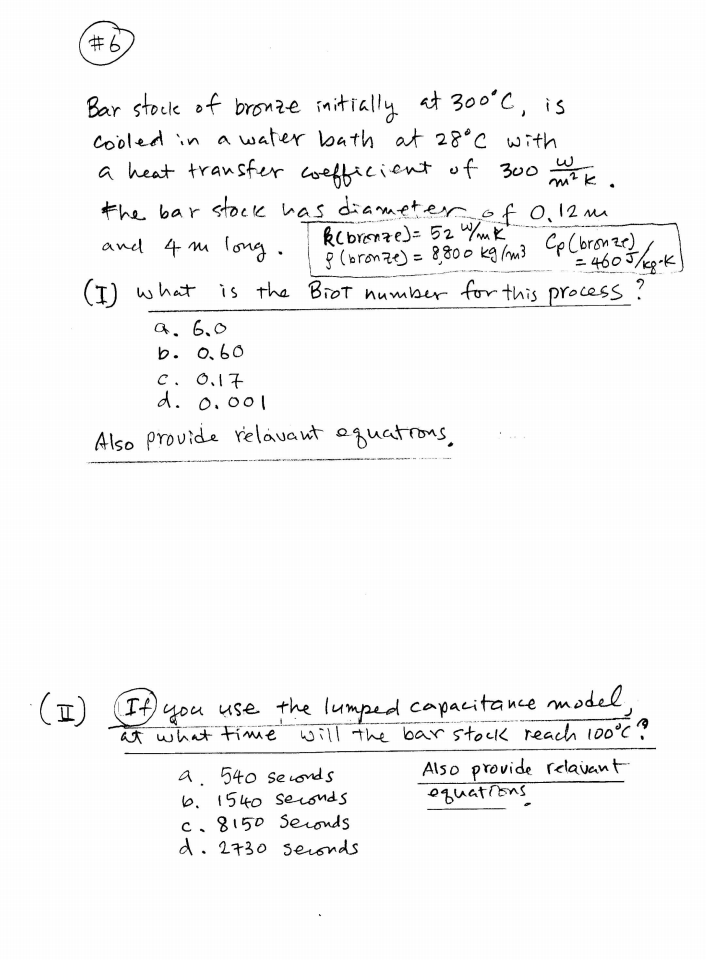 #6
Bar stock of bronze initially at 300°C, is
cooled in a water bath at 28°C with
a heat transfer coefficient of 300 W/m²K.
the bar stock has diameter of 0.12 m
and 4 m long.
k(bronze) = 52 W/mK
ρ(bronze) = 8,800 kg/m3
Cp(bronze)
= 460 J/kg·K
(I) what is the BioT number for this process?
a. 6.0
b. 0.60
c. 0.17
d. 0.001
Also provide relavant equations.
(II) If you use the lumped capacitance model,
at what time will the bar stock reach 100°C?
a. 540 seconds
b. 1540 seconds
c. 8150 Seconds
d. 2730 seconds
Also provide relavant
equations.